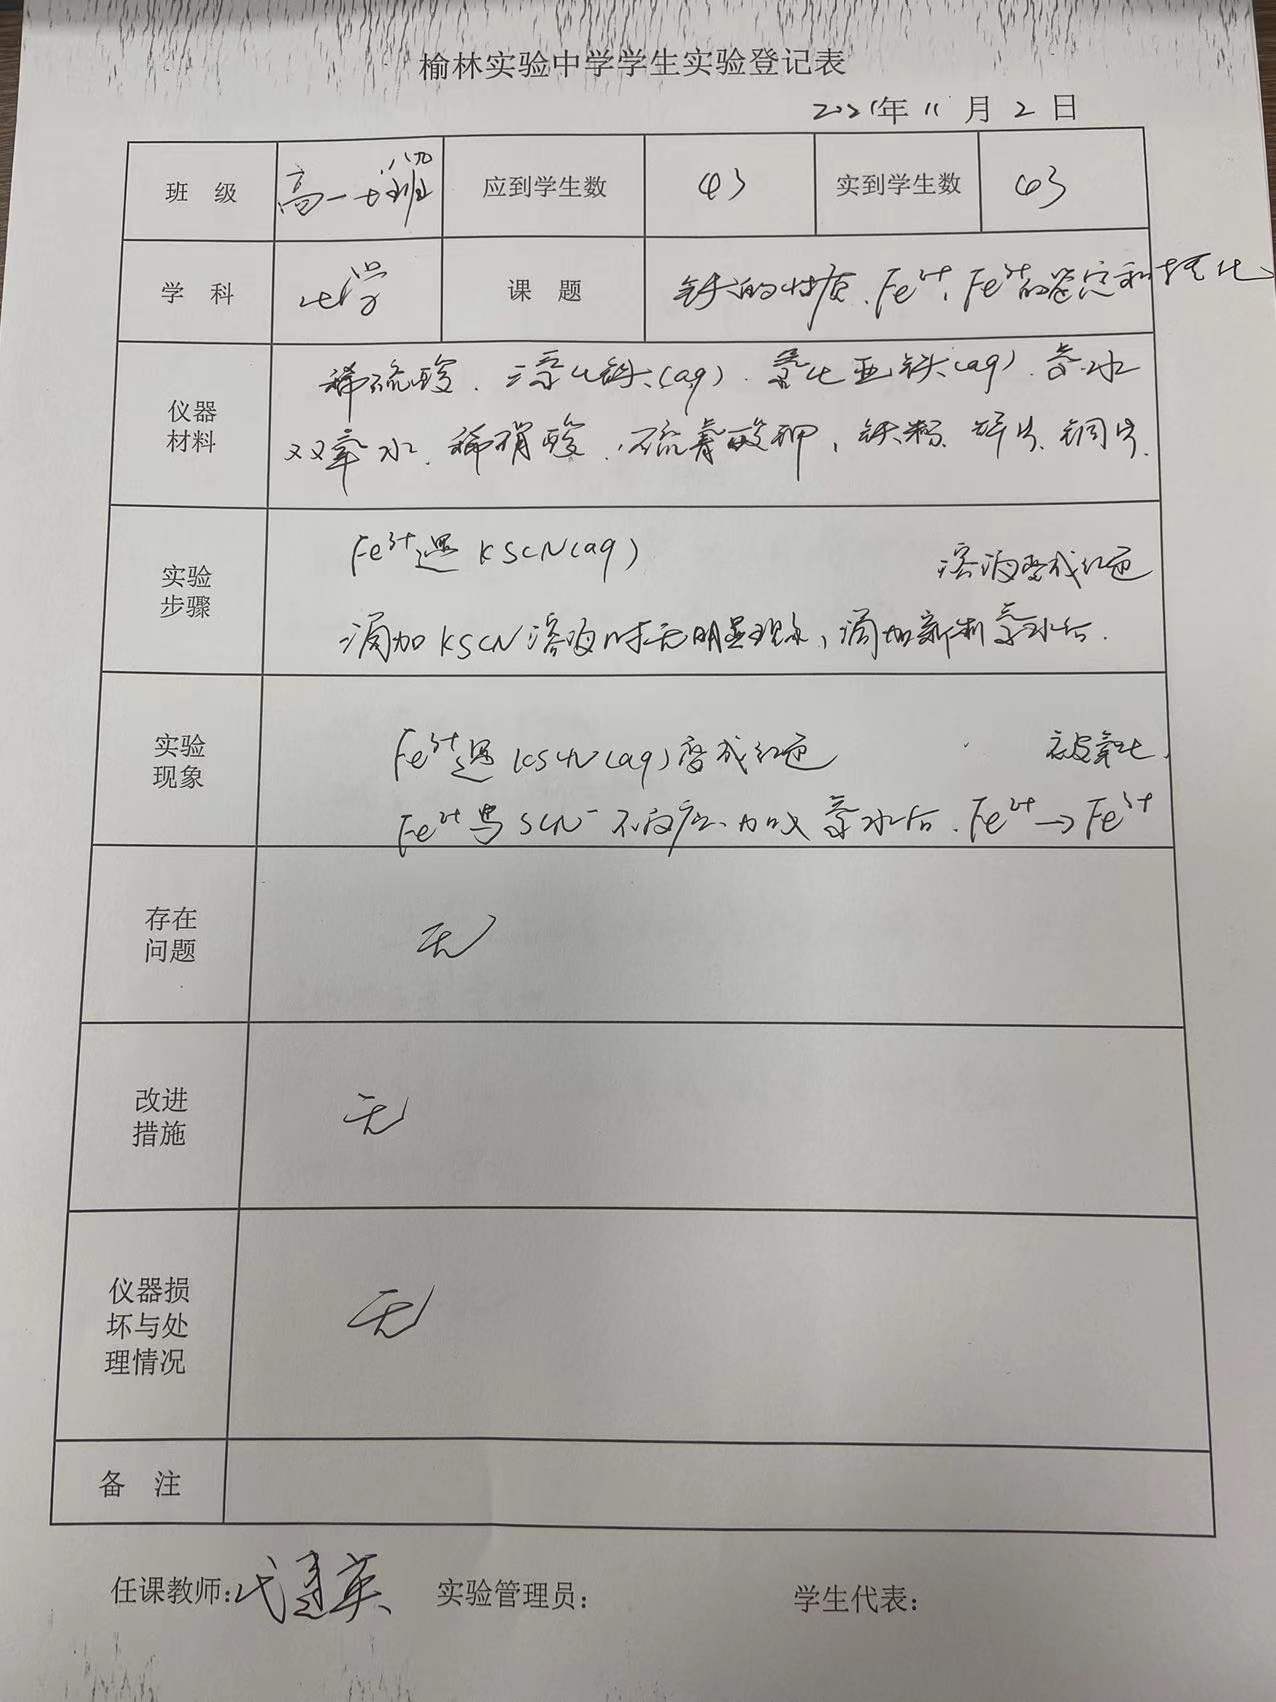 榆林实验中学学生实验登记表
2021年 11 月 2 日
班 级 高一 班 应到学生数 43 实到学生数 43
学 科 化学 课 题 铁的性质、Fe²⁺、Fe³⁺的鉴定和转化
仪器材料
稀硫酸、氯化铁(aq)、氯化亚铁(aq)、氯水
双氧水、稀硝酸、硫氰酸钾、铁粉、锌片、铜片、
实验步骤
Fe³⁺遇KSCN(aq) 溶液变成红色
滴加KSCN溶液时无明显现象,滴加新制氯水后.
实验现象
Fe³⁺遇KSCN(aq)变成红色 被氧化
Fe²⁺与SCN⁻不反应、加入氯水后、Fe²⁺→Fe³⁺
存在问题
无
改进措施
无
仪器损坏与处理情况
无
备 注
任课教师: 英 实验管理员: 学生代表: